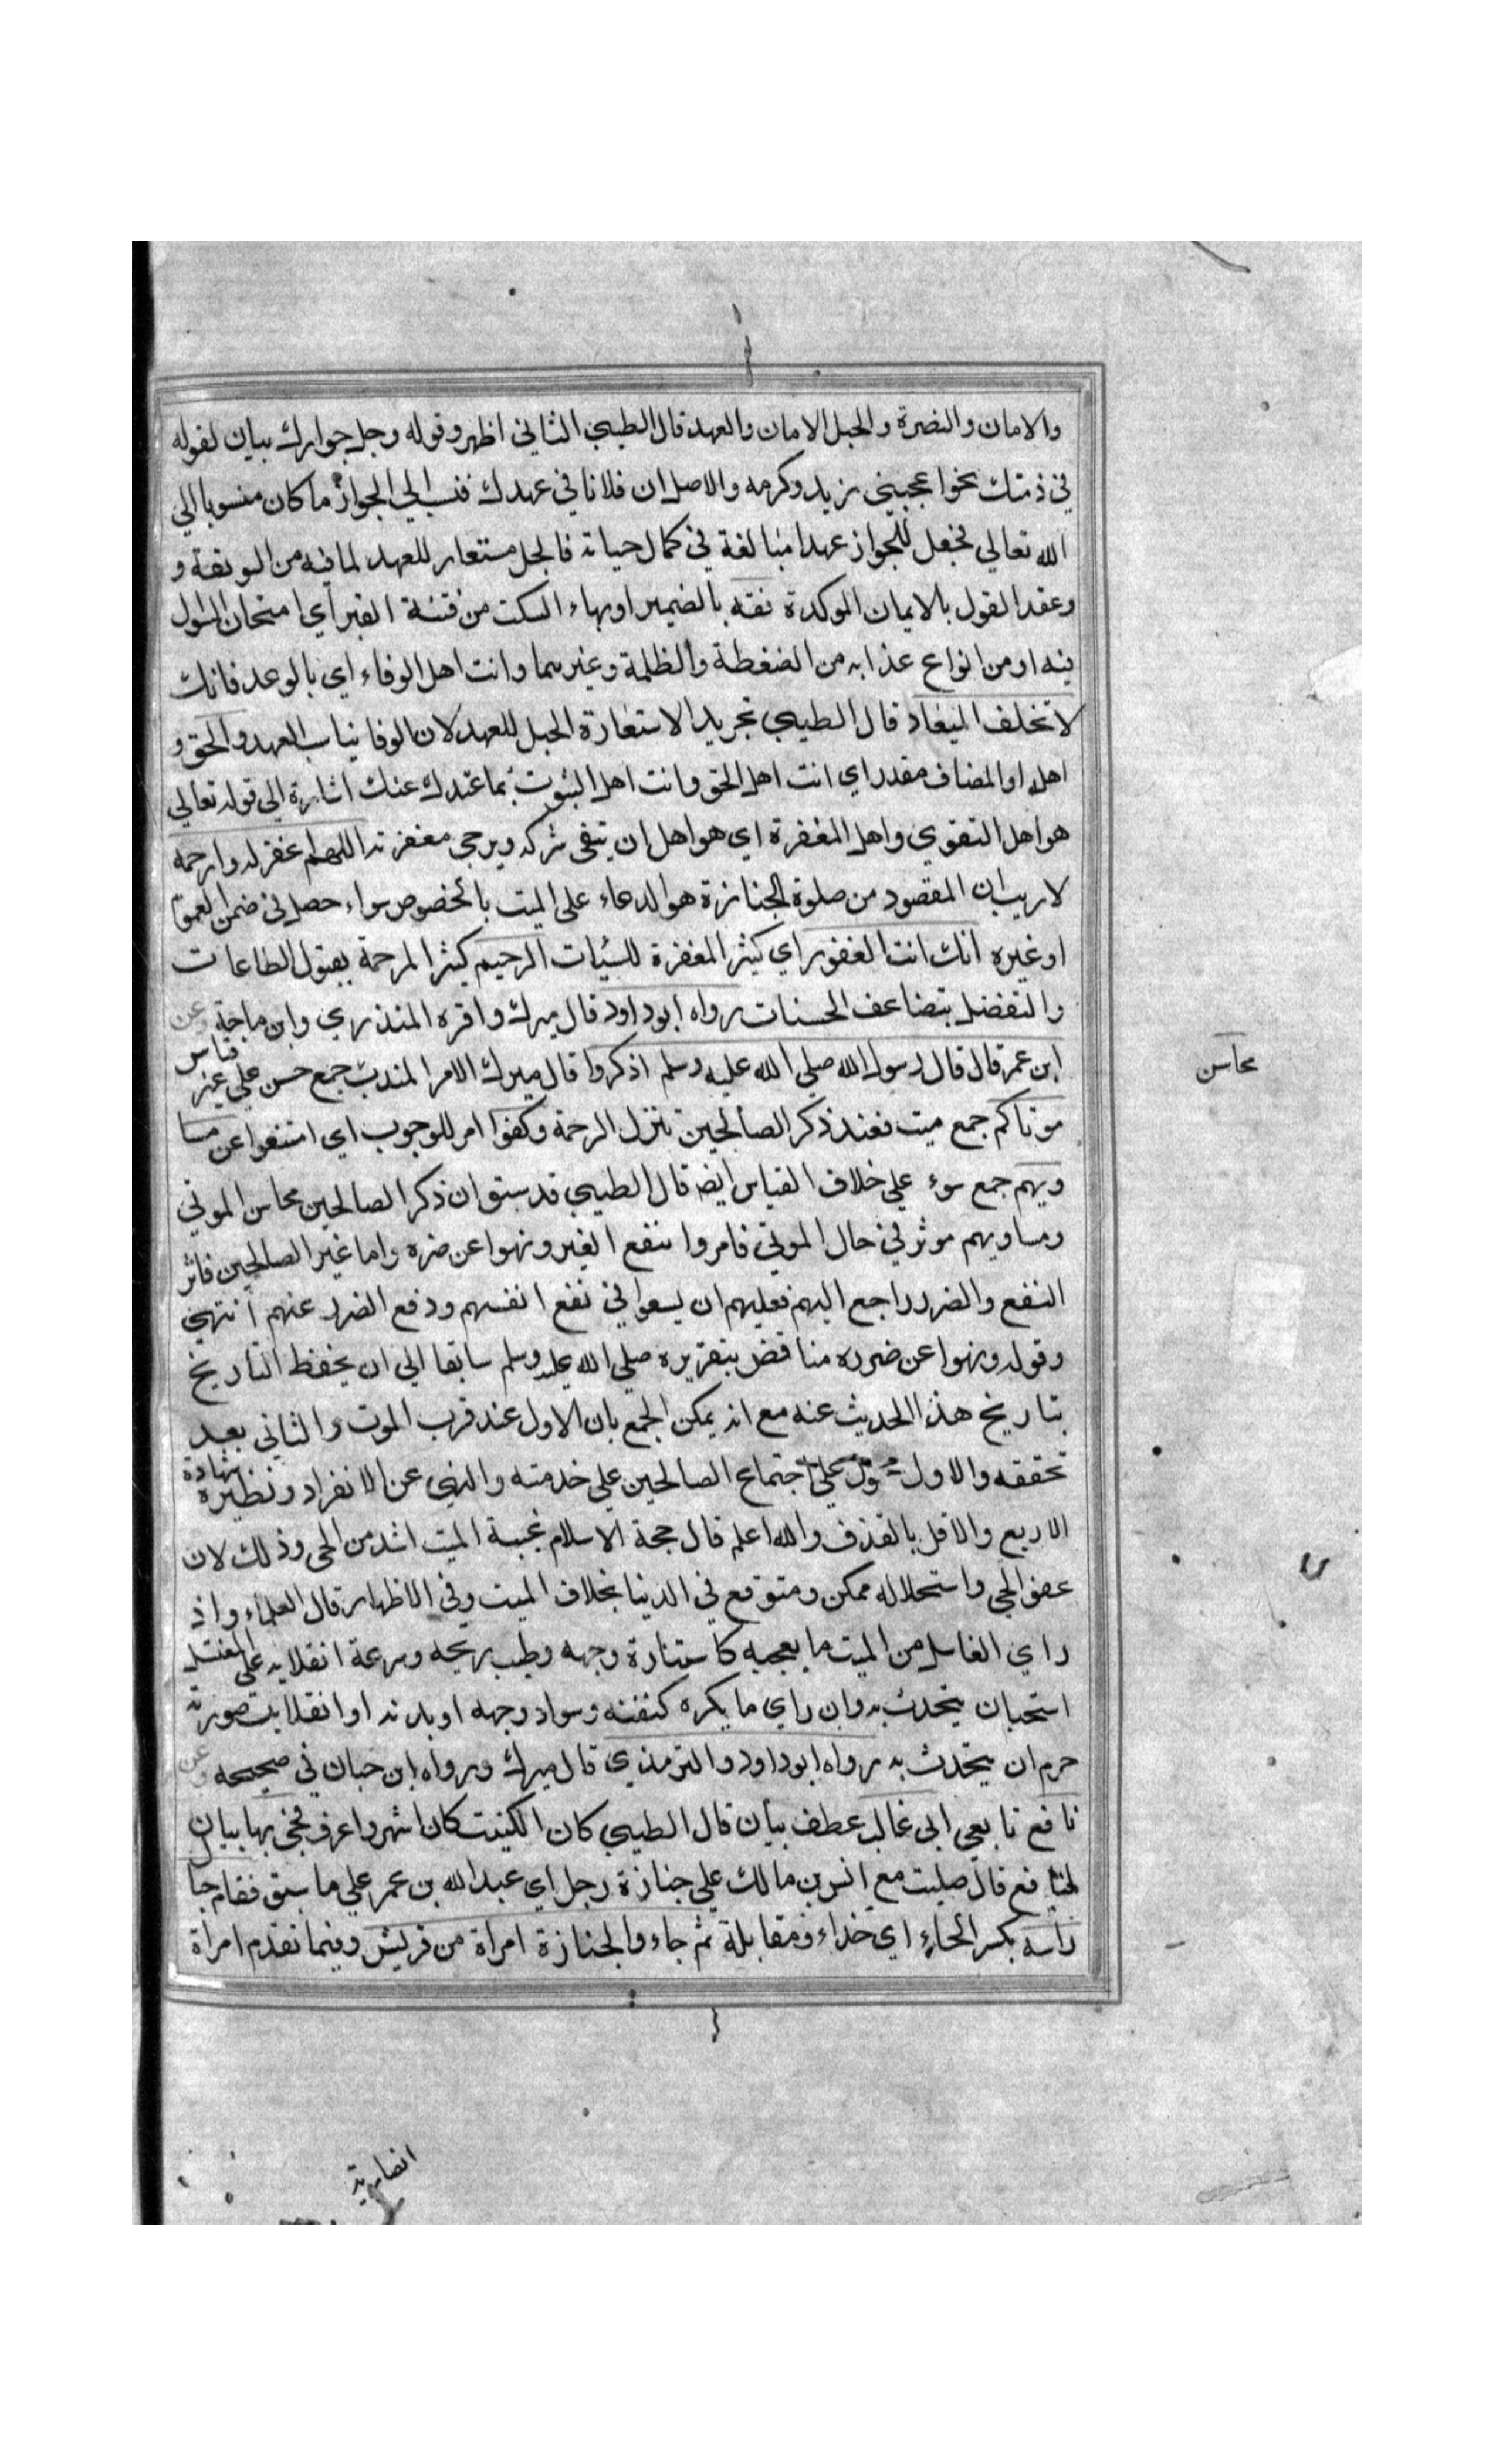 والامان والنصرة والحبل الامان والعهد قال الطيبي الثاني اظهر وقوله وحبل جوارك بيان لقوله
في ذمتك نحو اعجبني زيد وكرمه والاصل ان فلانا في عهدك فنسب الي الجوار ما كان منسوبا الي
الله تعالي فجعل للجوار عهدا مبالغة في كمال حياته فالحبل مستعار للعهد لما فيه من الوثقة و
وعقد القول بالايمان الموكدة فقه بالضمير او بهاء السكت من فتنة القبر اي امتحان السوال
فيه او من انواع عذابه من الضغطة والظلمة وغيرهما وانت اهل الوفاء اي بالوعد فانك
لا تخلف الميعاد قال الطيبي تجريد الاستعارة الحبل للعهد لان الوفا يناسب العهد والحق و
اهله او المضاف مقدر اي انت اهل الحق وانت اهل الثبوت بما عندك عنك اشارة الي قوله تعالي
هو اهل التقوي واهل المغفرة اي هو اهل ان يتقي شركه ويرجي مغفرته اللهم اغفر له وارحمه
لا ريب ان المقصود من صلوة الجنازة هو الدعاء علي الميت بالخصوص سواء حصل في ضمن العموم
او غيره انك انت الغفور اي كثير المغفرة للسيئات الرحيم كثير المرحمة بقبول الطاعات
والتفضل بتضاعف الحسنات رواه ابو داود قال ميرك واقره المنذري وابن ماجة وعن
ابن عمر قال قال رسول الله صلي الله عليه وسلم اذكروا قال ميرك الامر للندب جمع حسن علي غير قياس
محاسن
موتاكم جمع ميت فعند ذكر الصالحين تنزل الرحمة وكفوا امر للوجوب اي امتنعوا عن مسا
ويهم جمع سوء علي خلاف القياس ايضه قال الطيبي قد سبق ان ذكر الصالحين محاسن الموتي
ومساويهم موثر في حال الموتي فامروا بنفع الغير ونهوا عن ضره واما غير الصالحين فاثر
النفع والضرر راجع اليهم فعليهم ان يسعوا في نفع انفسهم ودفع الضرر عنهم انتهي
وقوله ونهوا عن ضرره مناقض بتقريره صلي الله عليه وسلم سابقا الي ان يحفظ التاريخ
بتاريخ هذا الحديث عنه مع انه يمكن الجمع بان الاول عند قرب الموت والثاني بعد
تحققه والاول علي اجتماع الصالحين علي خدمته والنهي عن الانفراد ونظيره شهادة
الاربع والاقل بالقذف والله اعلم قال حجة الاسلام غيبة الميت اشد من الحي وذلك لان
عفو الحي واستحلاله ممكن ومتوقع في الدنيا بخلاف الميت وفي الاظهار قال العلماء واذ
راي الغاسل من الميت ما يعجبه كاستنارة وجهه وطيب ريحه وسرعة انقلابه علي المغتسل
استحبان يتحدث به وان راي ما يكره كنتنه وسواد وجهه او بدنه او انقلابت صورته
حرم ان يتحدث به رواه ابو داود والترمذي قال ميرك ورواه ابن حبان في صحيحه وعن
نافع تابعي ابي غالب عطف بيان قال الطيبي كان الكنيت كان اشهر واعرف فجي بها بيان
لنافع قال صليت مع انس بن مالك علي جنازة رجل اي عبد الله بن عمر علي ما سبق فقام حيا
راسه بكسر الحاء اي حذاء ومقابلة ثم جاءوا الجنازة امراة من قريش وفيما تقدم امراة
انصارية